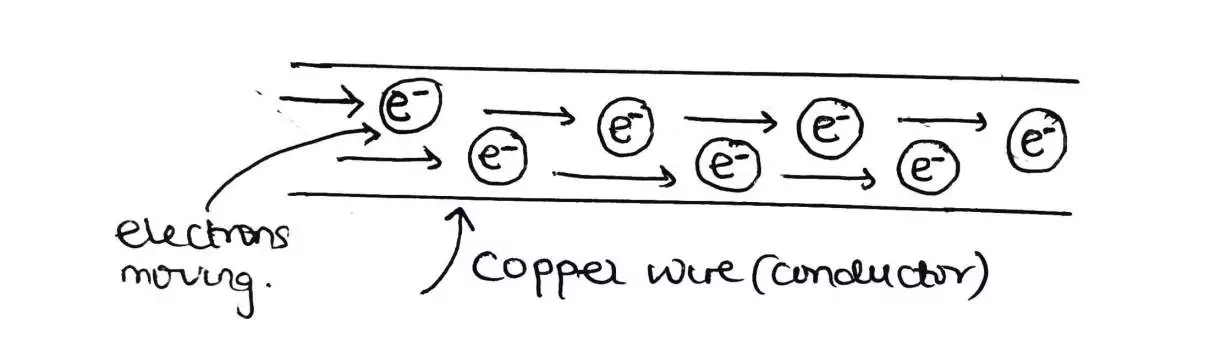 e⁻ e⁻ e⁻ e⁻
e⁻ e⁻ e⁻
electrons
moving.
copper wire (conductor)